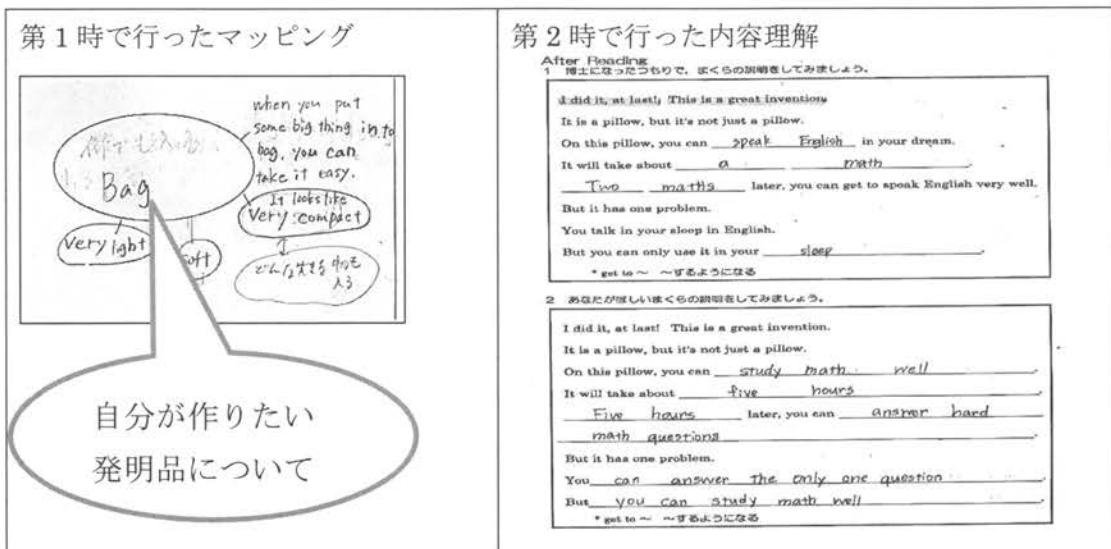 第1時で行ったマッピング
when you put
some big thing in to
bag, you can
take it easy.
It looks like
Very compact
Bag
Very light
soft
自分が作りたい
発明品について
第2時で行った内容理解
After Reading
1 博士になったつもりで、まくらの説明をしてみましょう。
I did it, at last! This is a great invention.
It is a pillow, but it's not just a pillow.
On this pillow, you can speak English in your dream.
It will take about a math
Two maths later, you can get to speak English very well.
But it has one problem.
You talk in your sleep in English.
But you can only use it in your sleep.
* get to ~ ~するようになる
2 あなたがほしいまくらの説明をしてみましょう。
I did it, at last! This is a great invention.
It is a pillow, but it's not just a pillow.
On this pillow, you can study math well.
It will take about five hours.
Five hours later, you can answer hard
math questions.
But it has one problem.
You can answer the only one question.
But you can study math well.
* get to ~ ~するようになる